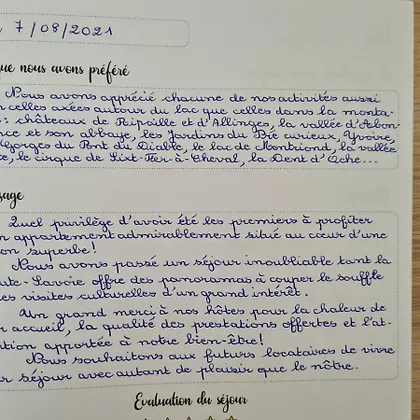 7/08/2021
que nous avons préféré
Nous avons apprécié chacune de nos activités aussi
celles axées autour du lac que celles dans la monta-
: châteaux de Ripaille et d'Allinges, la vallée d'Abon-
ce et son abbaye, les Jardins du Pré curieux, Yvoire,
Gorges du Pont du Diable, le lac de Montriond, la vallée
, le cirque de Sixt-Fer-à-Cheval, la Dent d'Oche...
sage
Quel privilège d'avoir été les premiers à profiter
n appartement admirablement situé au cœur d'une
on superbe!
Nous avons passé un séjour inoubliable tant la
ute-Savoie offre des panoramas à couper le souffle
es visites culturelles d'un grand intérêt.
Un grand merci à nos hôtes pour la chaleur de
r accueil, la qualité des prestations offertes et l'at-
tion apportée à notre bien-être!
Nous souhaitons aux futurs locataires de vivre
r séjour avec autant de plaisir que le nôtre.
Evaluation du séjour